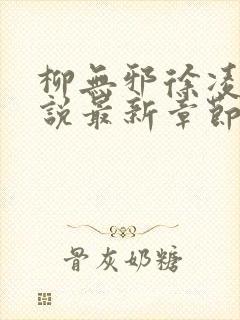 柳無邪徐凌
說最新章節
骨灰奶糖